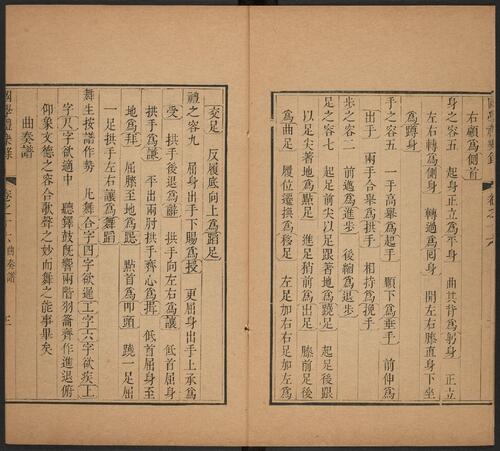 右顧爲側首
身之容五 起身正立爲平身 曲其背爲躬身 正立
左右轉爲側身 轉過爲囘身 開左右膝直身下坐
爲蹲身
手之容五 一手高舉爲起手 順下爲垂手 前伸爲
出手 兩手合舉爲拱手 相持爲挽手
步之容二 前邁爲進步 後縮爲退步
足之容七 起足前尖以足跟著地爲蹺足 起足後跟
以足尖著地爲點足 進足稍前爲出足 膝前足後
爲曲足 履位遷換爲移足 左足加右右足加左爲
交足 反履底向上爲蹈足
禮之容九 屈身出手下賜爲授 更屈身出手上承爲
受 拱手後退爲辭 拱手向左右爲讓 低首屈身
拱手爲謙 平出兩肘拱手齊心爲揖 低首屈身至
地爲拜 屈膝至地爲跪 點首爲叩頭 蹺一足屈
一足拱手左右讓爲舞蹈
舞生按譜作勢 凡舞合字四字欲遲工字六字欲疾上
字尺字欲適中 聽鐸鼓旣響兩階羽籥齊作進退俯
仰象文德之容合歌聲之妙而舞之能事畢矣
曲奏譜
卷之十六曲奏譜 三